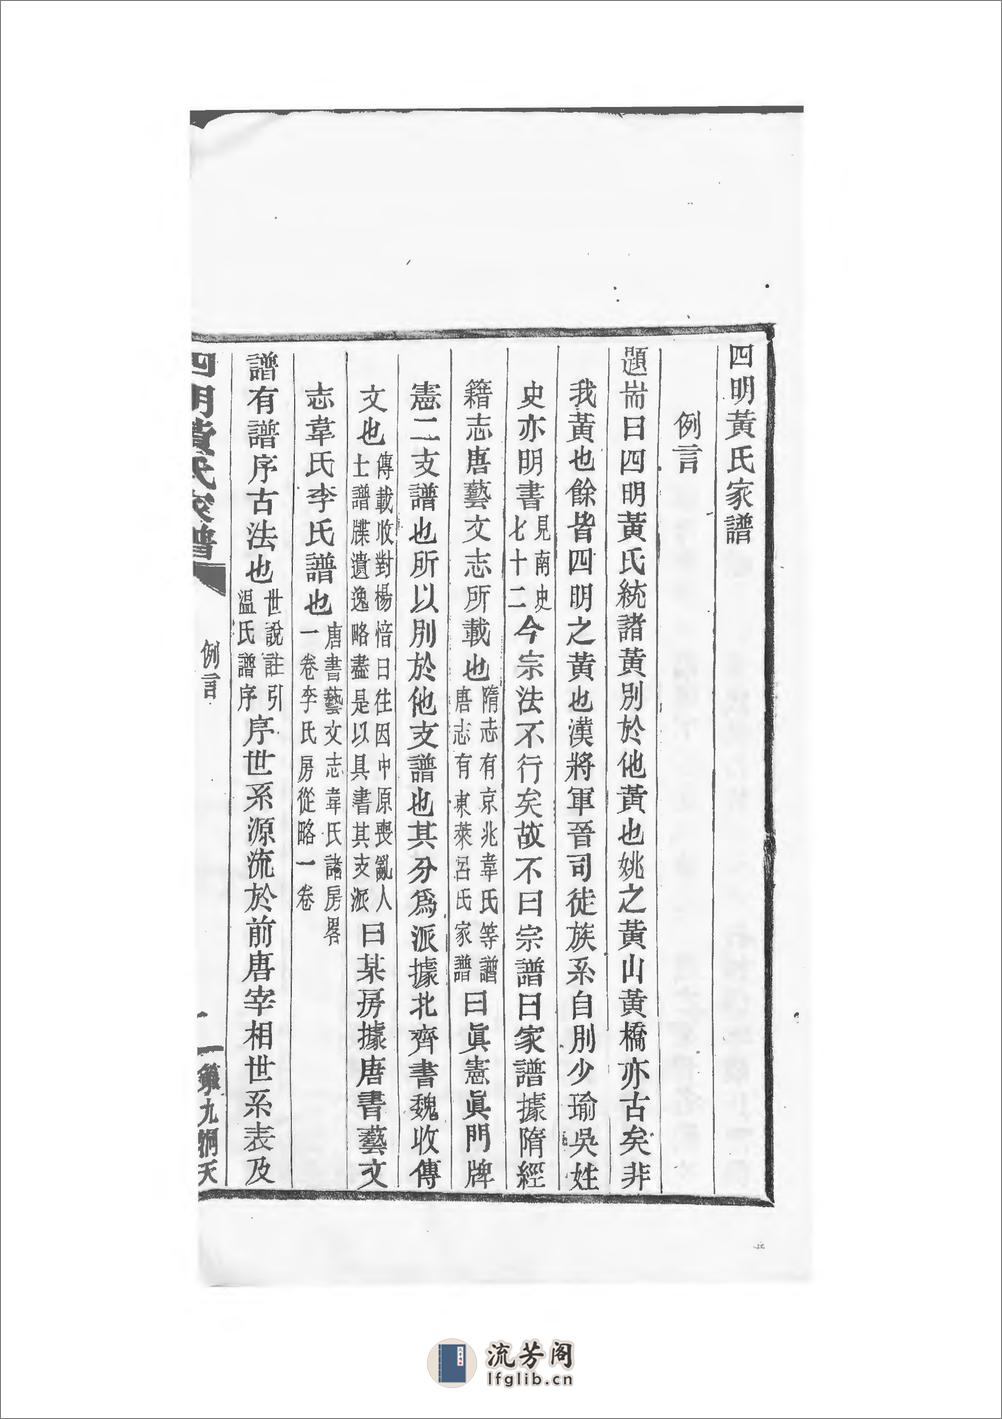 四明黃氏家譜
例言
題耑曰四明黃氏統諸黃別於他黃也姚之黃山黃橋亦古矣非
我黃也餘皆四明之黃也漢將軍晉司徒族系自別少瑜吳姓
史亦明書見南史七十二今宗法不行矣故不曰宗譜曰家譜據隋經
籍志唐藝文志所載也隋志有京兆韋氏等譜唐志有東萊呂氏家譜曰眞憲眞門牌
憲二支譜也所以別於他支譜也其分爲派據北齊書魏收傳
文也傳載收對楊愔曰往因中原喪亂人士譜牒遺逸略盡是以具書其支派曰某房據唐書藝文
志韋氏李氏譜也唐書藝文志韋氏諸房畧一卷李氏房從略一卷
譜有譜序古法也世說註引温氏譜序序世系源流於前唐宰相世系表及
四明黃氏家譜
例言
一
第九洞天
流芳阁
lfglib.cn